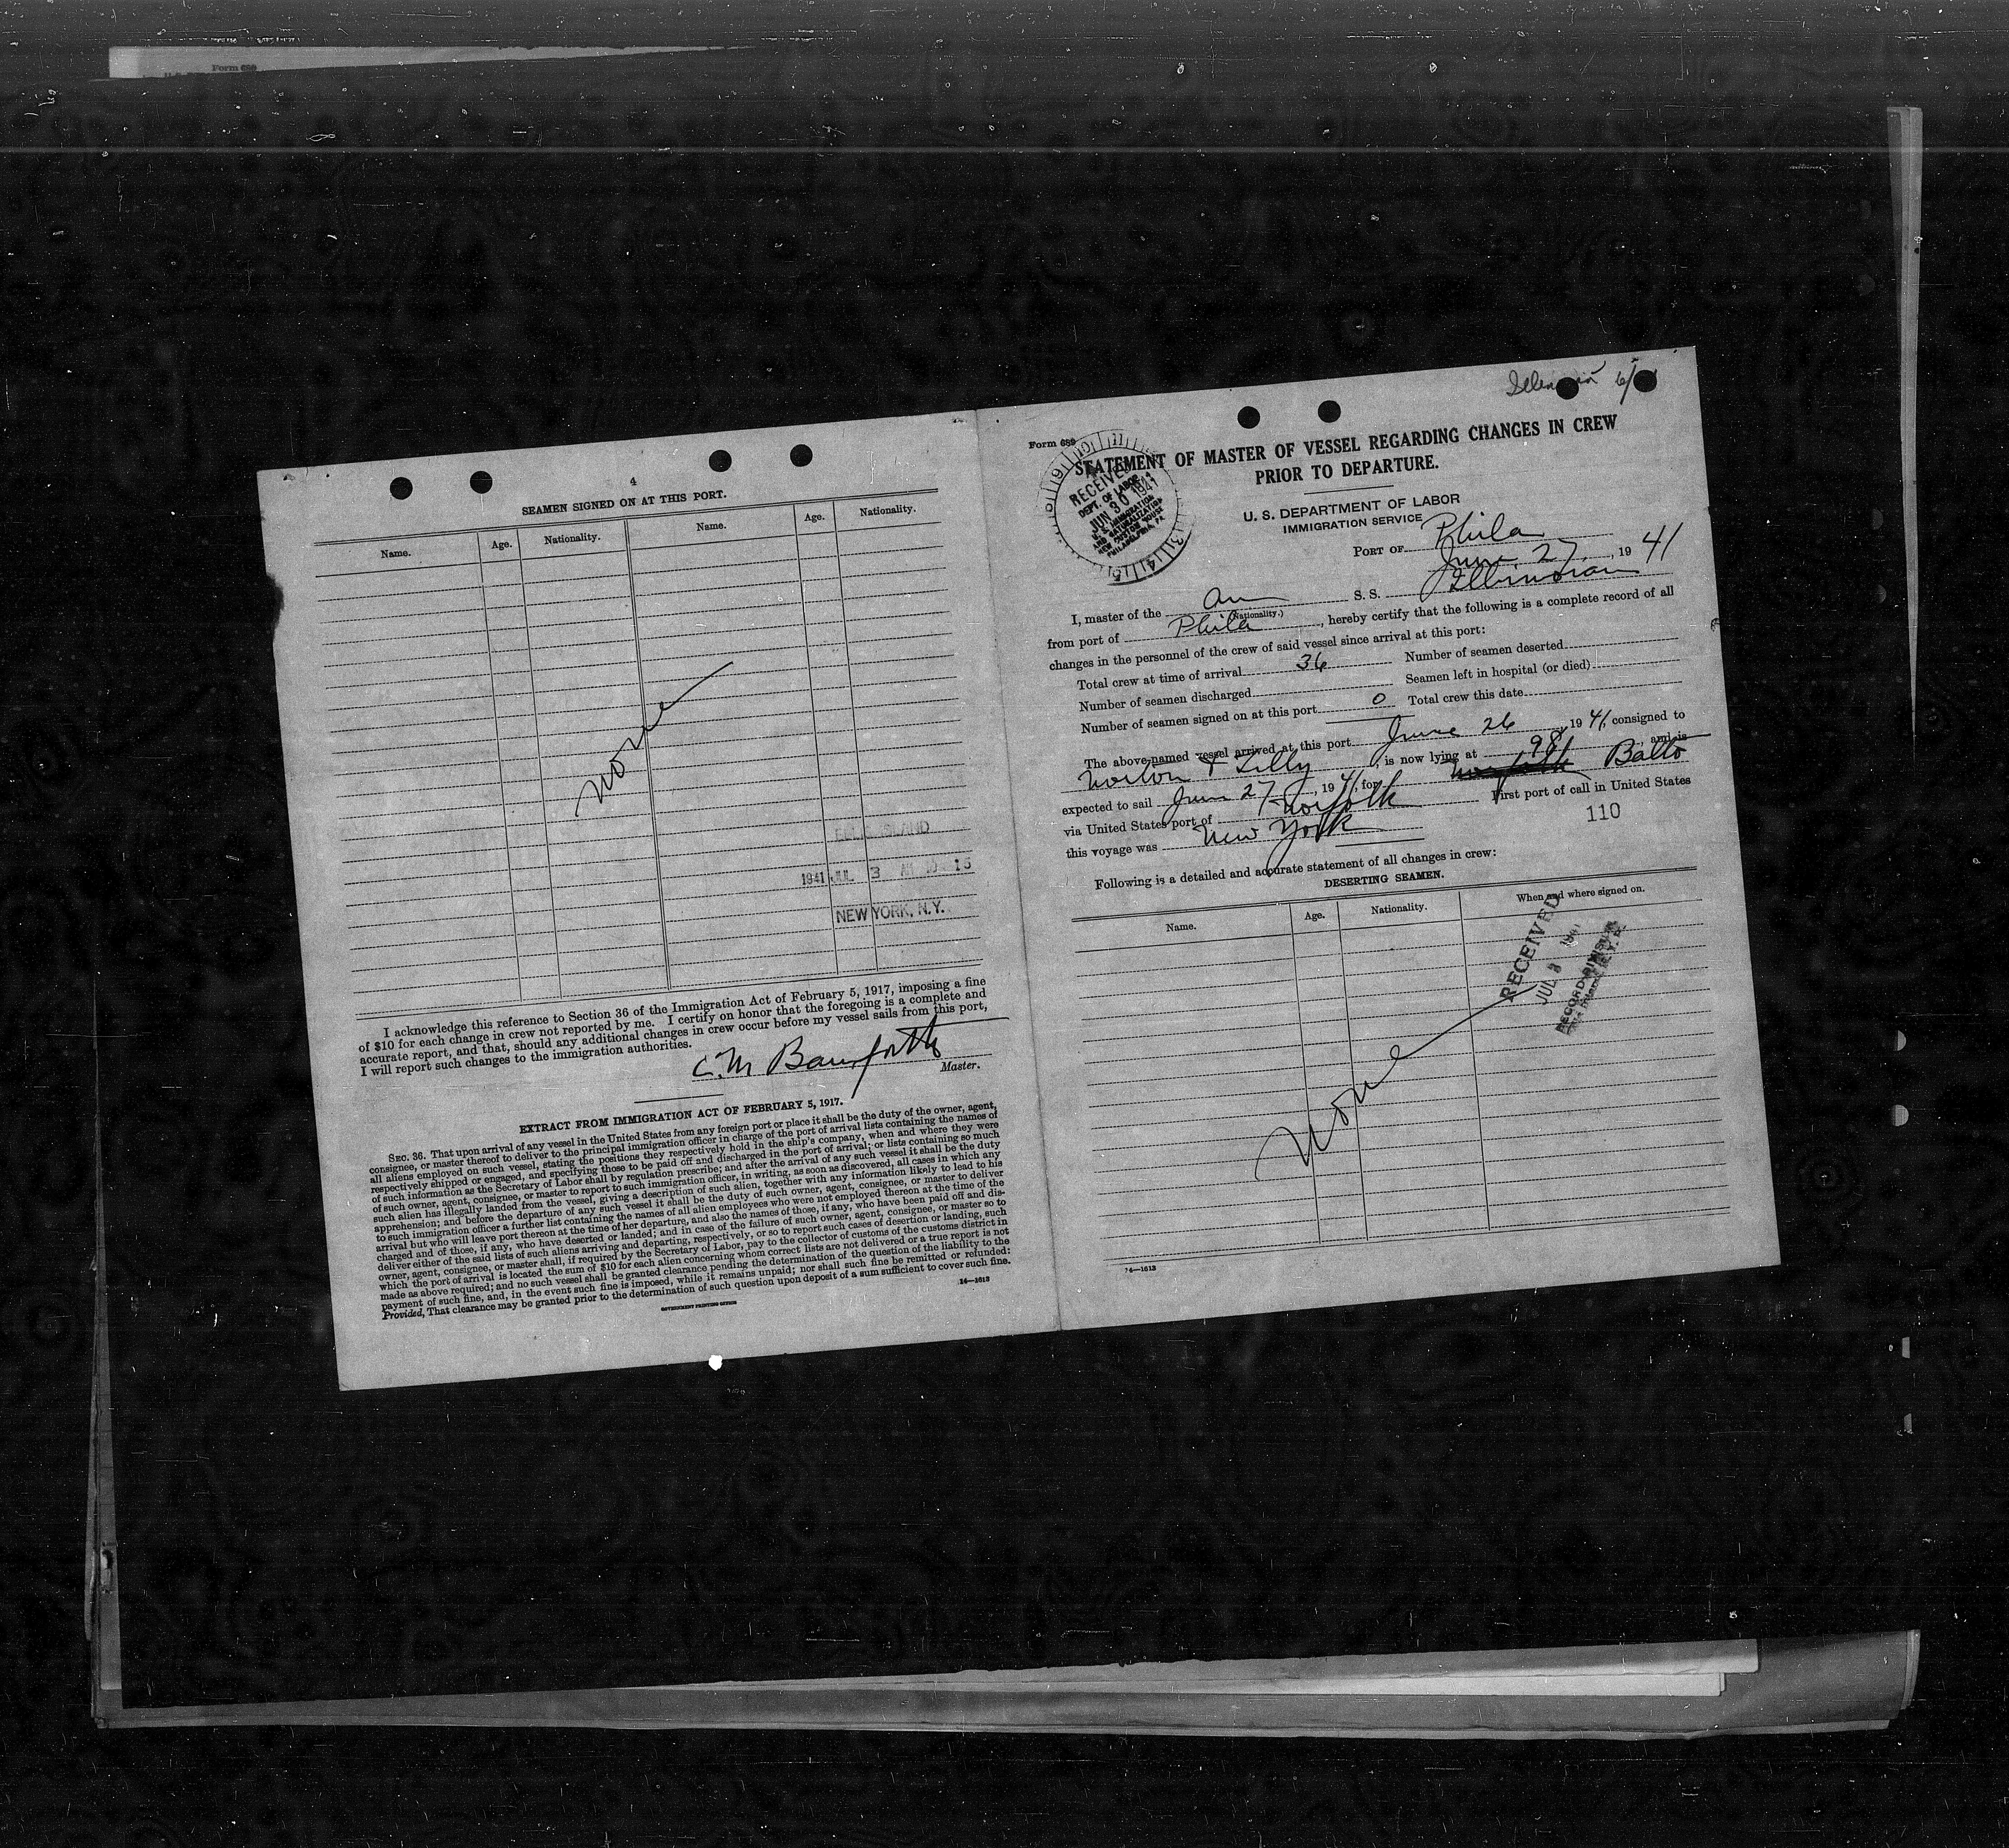 Form 689
4
SEAMEN SIGNED ON AT THIS PORT.
Name. Age. Nationality. Name. Age. Nationality.
None
ELLIS ISLAND
1941 JUL 3 AM 10 15
NEW YORK, N.Y.
I acknowledge this reference to Section 36 of the Immigration Act of February 5, 1917, imposing a fine
of $10 for each change in crew not reported by me. I certify on honor that the foregoing is a complete and
accurate report, and that, should any additional changes in crew occur before my vessel sails from this port,
I will report such changes to the immigration authorities.
C. M. Bamforth
Master.
EXTRACT FROM IMMIGRATION ACT OF FEBRUARY 5, 1917.
SEC. 36. That upon arrival of any vessel in the United States from any foreign port or place it shall be the duty of the owner, agent,
consignee, or master thereof to deliver to the principal immigration officer in charge of the port of arrival lists containing the names of
all aliens employed on such vessel, stating the positions they respectively hold in the ship's company, when and where they were
respectively shipped or engaged, and specifying those to be paid off and discharged in the port of arrival; or lists containing so much
of such information as the Secretary of Labor shall by regulation prescribe; and after the arrival of any such vessel it shall be the duty
of such owner, agent, consignee, or master to report to such immigration officer, in writing, as soon as discovered, all cases in which any
such alien has illegally landed from the vessel, giving a description of such alien, together with any information likely to lead to his
apprehension; and before the departure of any such vessel it shall be the duty of such owner, agent, consignee, or master to deliver
to such immigration officer a further list containing the names of all alien employees who were not employed thereon at the time of the
arrival but who will leave port thereon at the time of her departure, and also the names of those, if any, who have been paid off and dis-
charged and of those, if any, who have deserted or landed; and in case of the failure of such owner, agent, consignee, or master so to
deliver either of the said lists of such aliens arriving and departing, respectively, or so to report such cases of desertion or landing, such
owner, agent, consignee, or master shall, if required by the Secretary of Labor, pay to the collector of customs of the customs district in
which the port of arrival is located the sum of $10 for each alien concerning whom correct lists are not delivered or a true report is not
made as above required; and no such vessel shall be granted clearance pending the determination of the question of the liability to the
payment of such fine, and, in the event such fine is imposed, while it remains unpaid; nor shall such fine be remitted or refunded:
Provided, That clearance may be granted prior to the determination of such question upon deposit of a sum sufficient to cover such fine.
GOVERNMENT PRINTING OFFICE
14—1613
Form 689
STATEMENT OF MASTER OF VESSEL REGARDING CHANGES IN CREW
PRIOR TO DEPARTURE.
RECEIVED
DEPT. OF LABOR
JUN 30 1941
U. S. IMMIGRATION
AND NATURALIZATION
NEW CUSTOM HOUSE
PHILADELPHIA, PA
U. S. DEPARTMENT OF LABOR
IMMIGRATION SERVICE
PORT OF Phila
June 27, 1941
I, master of the Am S. S. Illinoian
(Nationality.)
from port of Phila, hereby certify that the following is a complete record of all
changes in the personnel of the crew of said vessel since arrival at this port:
Total crew at time of arrival 36 Number of seamen deserted
Number of seamen discharged Seamen left in hospital (or died)
Number of seamen signed on at this port 0 Total crew this date
The above-named vessel arrived at this port June 26 1941, consigned to
Norton & Lilly, is now lying at 98, and is
expected to sail June 27, 1941, for Norfolk Balto
via United States port of Norfolk First port of call in United States
this voyage was New York
110
Following is a detailed and accurate statement of all changes in crew:
DESERTING SEAMEN.
Name. Age. Nationality. When and where signed on.
RECEIVED
JUL 3 1941
None
14—1613